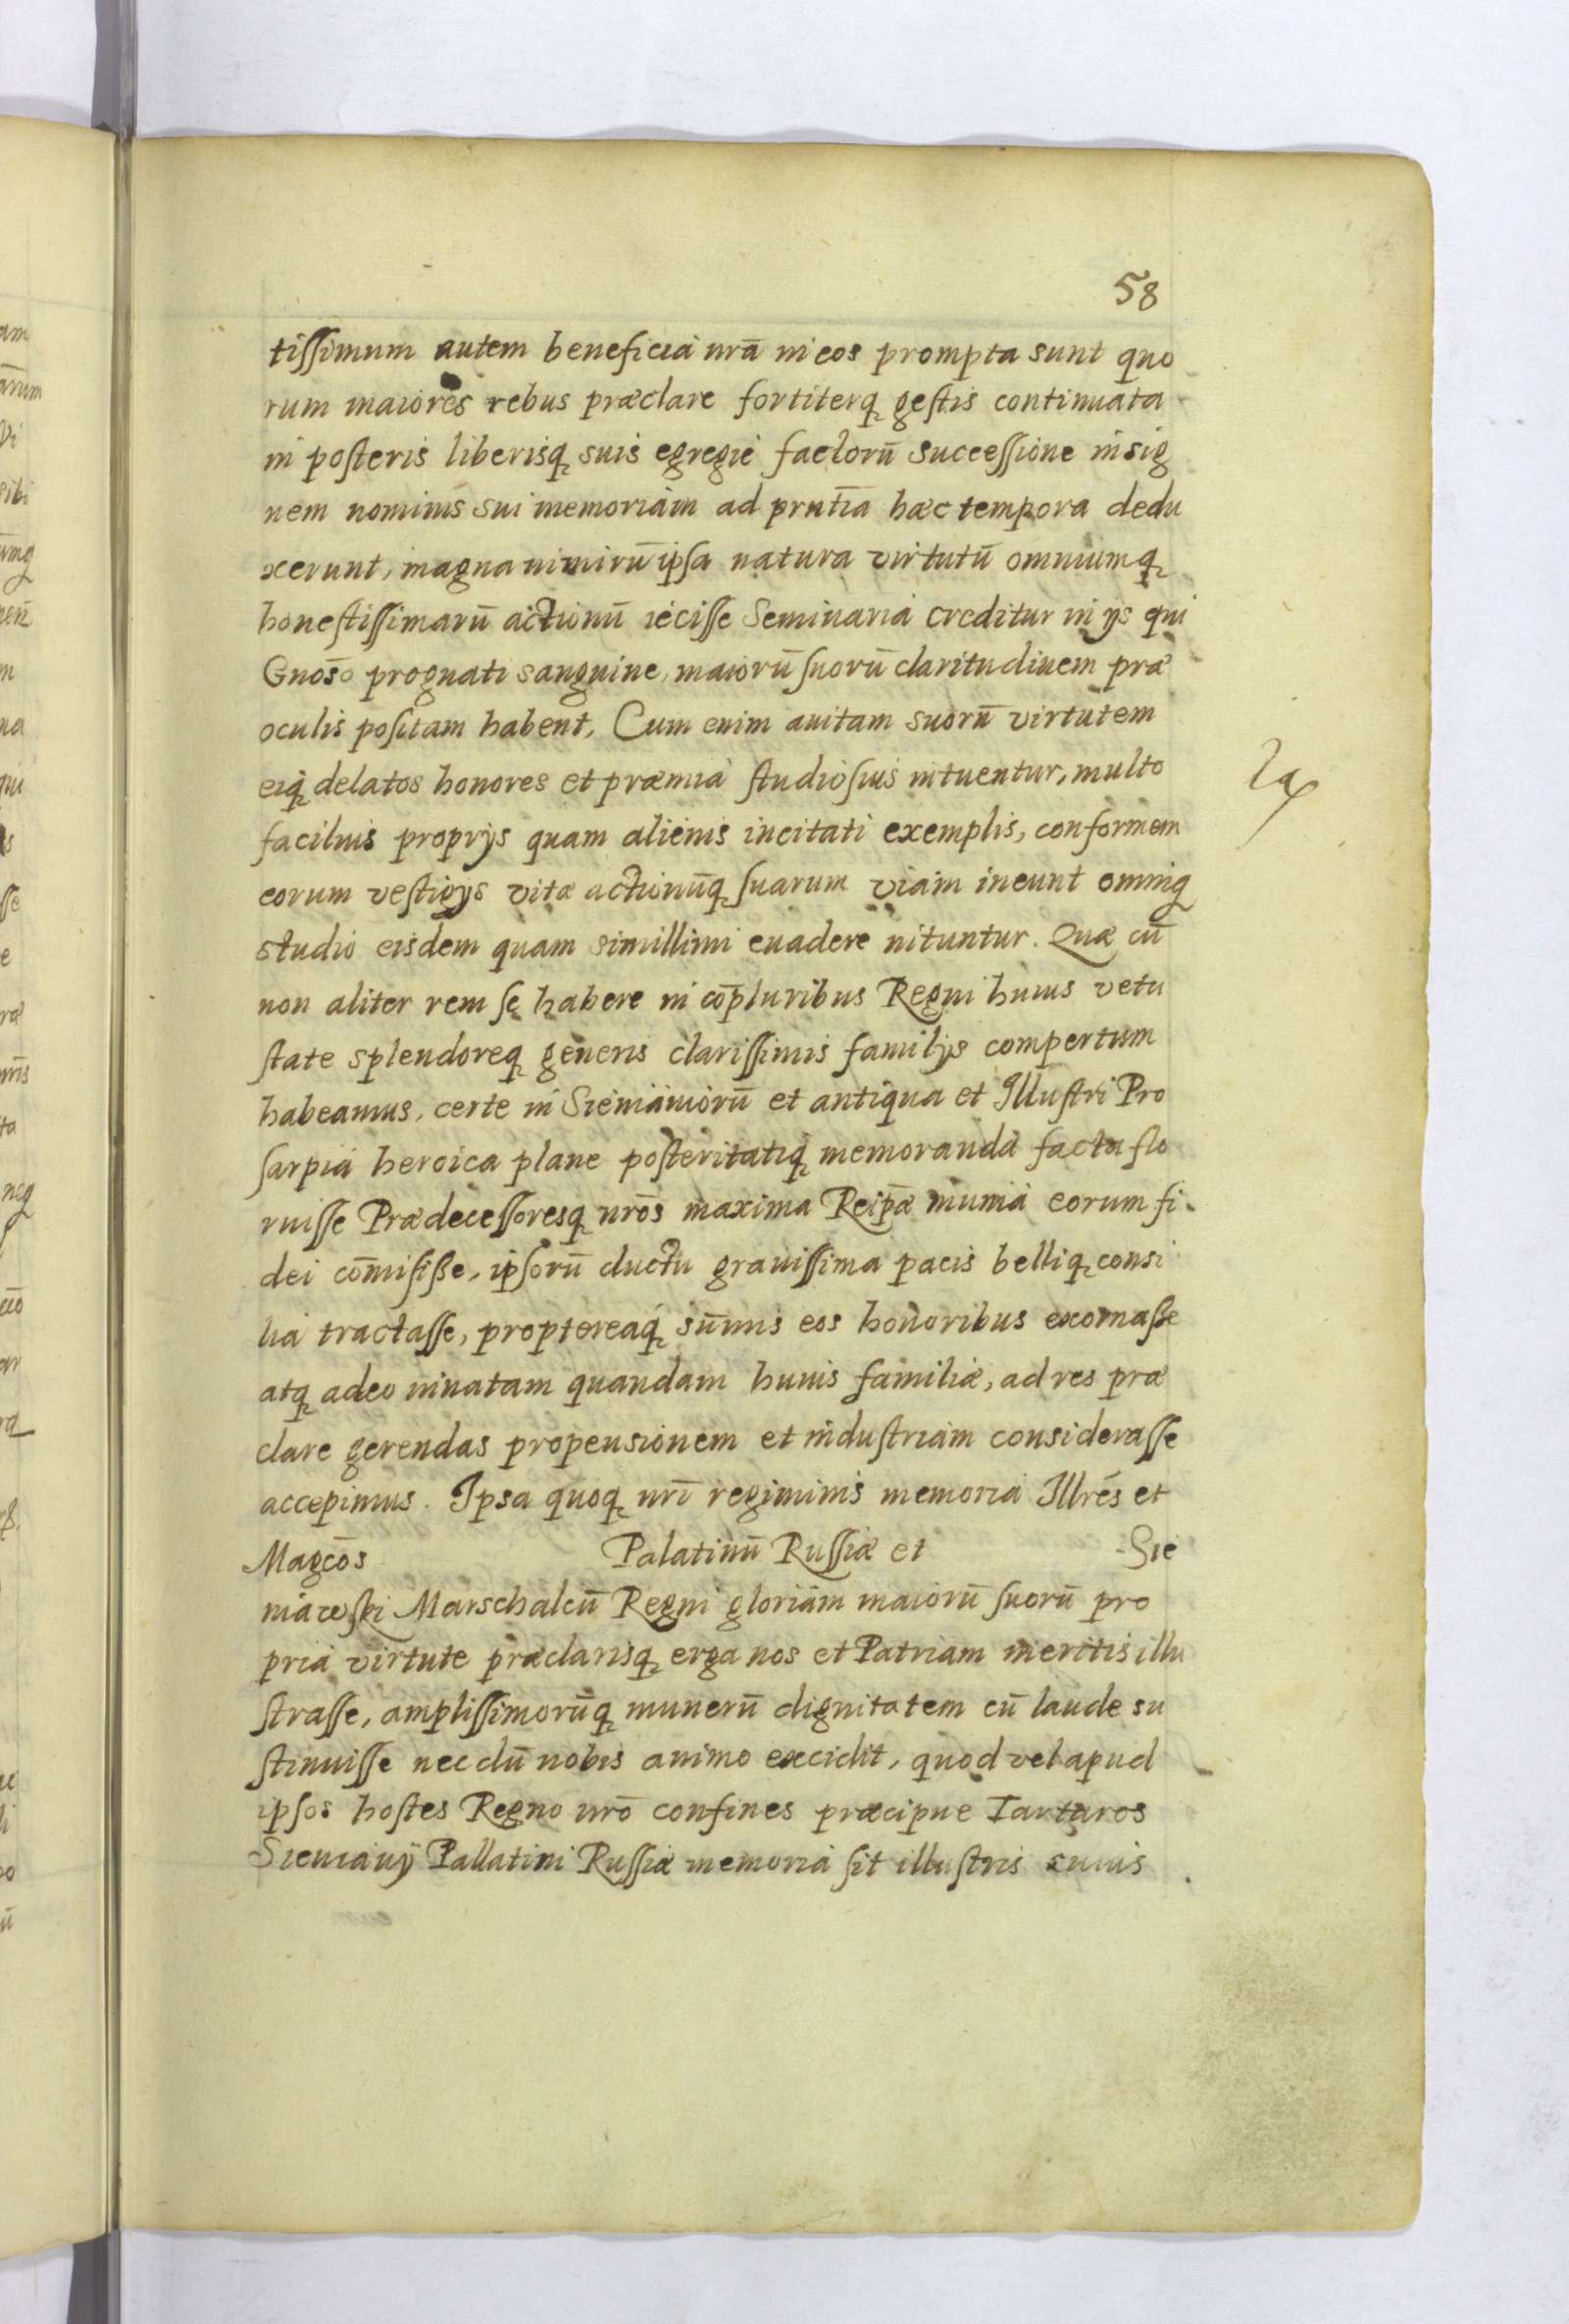 58
tiſſimum autem beneficia nrā in eos prompta sunt quo
rum maiores rebus præclare fortiterq geſtis continuata
in poſteris liberisq suis egregie factorū Succeſſione insig
nem nominis sui memoriam ad pnt̄ia hæc tempora dedu
xerunt, magna nimirū ipſa natura virtutū omniumq
honeſtiſſimarū actionū ieciſſe Seminaria creditur in ijs qui
Gnōso prognati sanguine, maiorū ſuorū claritudinem præ
oculis poſitam habent, Cum enim auitam suorū virtutem
eiq delatos honores et præmia ſtudioſius intuentur, multo
facilius proprijs quam alienis incitati exemplis, conformem
eorum veſtigijs vitæ actionūq ſuarum viam ineunt omniq
studio eisdem quam simillimi euadere nituntur. Quæ cū
non aliter rem ſe habere in cōpluribus Regni huius vetu
ſtate splendoreq generis clariſſimis familijs compertum
habeamus, certe in Sieniauiorū et antiqua et Illuſtri Pro
ſarpia heroica plane poſteritatiq memoranda facta flo
ruiſſe Prædeceſſoresq nrōs maxima Reip̄æ munia eorum fi
dei cōmiſiße, ipſorū ductu grauiſſima pacis belliq consi
lia tractaſſe, proptereaq sūmis eos honoribus exornaße
atq adeo innatam quandam huius familiæ, ad res præ
clare gerendas propensionem et induſtriam consideraſſe
accepimus. Ipsa quoq nrī regiminis memoria Illrēs et
Magcōs Palatinū Ruſſiæ et Sie
niaweſki Marschalcū Regni gloriam maiorū ſuorū pro
pria virtute præclarisq erga nos et Patriam meritis illu
ſtraſſe, ampliſſimorūq munerū dignitatem cū laude su
ſtinuiſſe nec dū nobis animo excidit, quod vel apud
ipſos hoſtes Regno nrō confines præcipue Tartaros
Sieniauij Pallatini Ruſſiæ memoria ſit illuſtris cuius